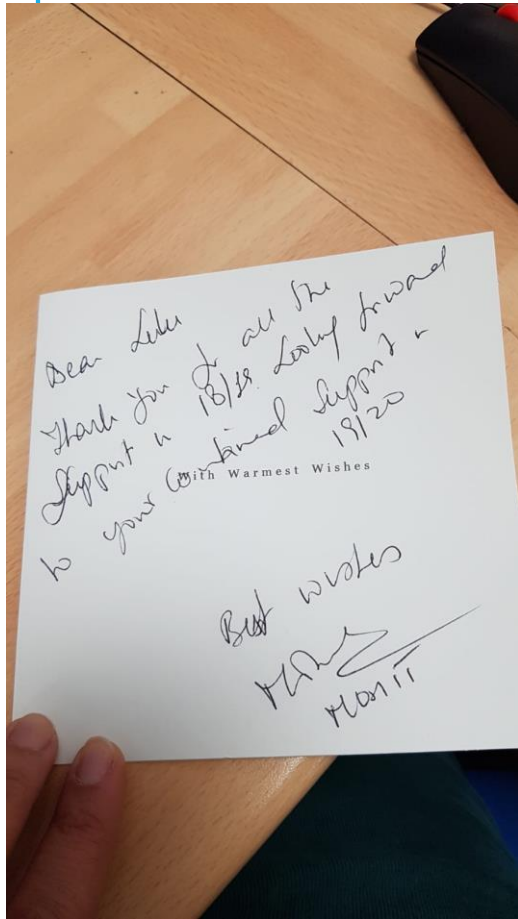 Dear Luke
Thank you for all the
Support in 18/19. Looking forward
to your Continued Support in
19/20
With Warmest Wishes
Best wishes